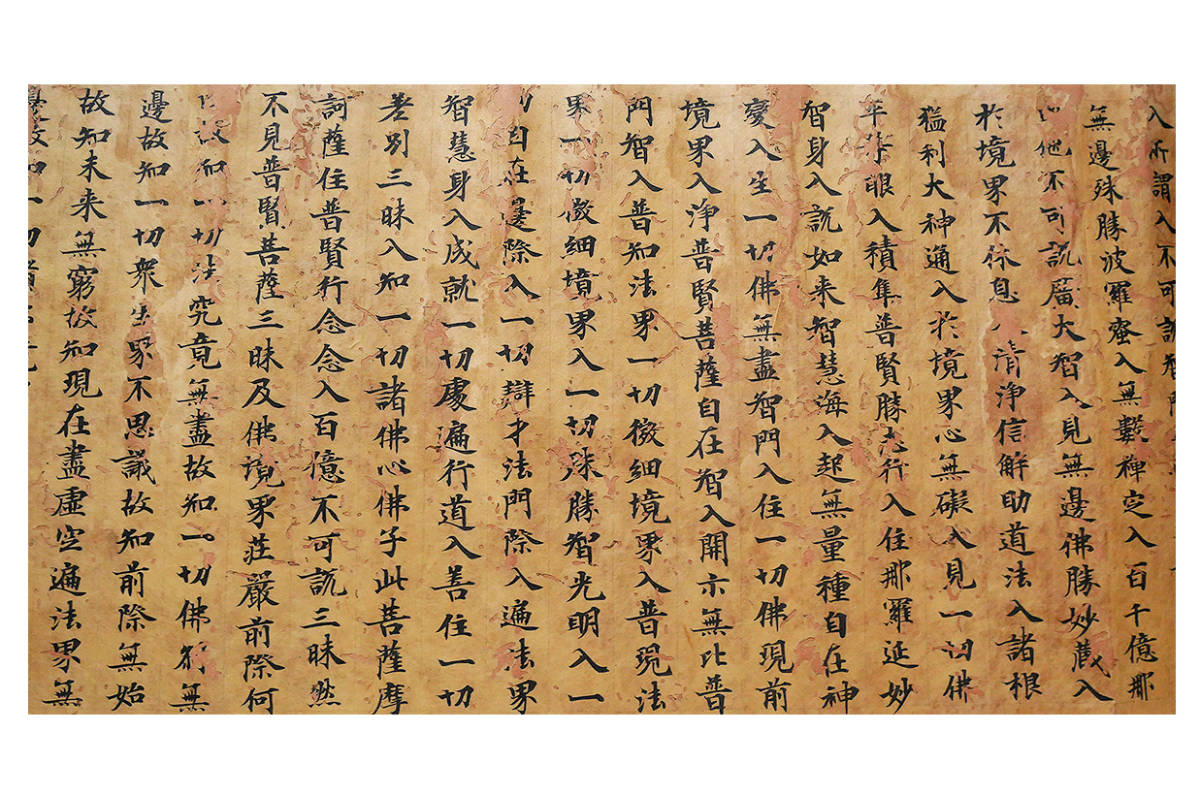 入所謂入不可說智門
無邊殊勝波羅蜜入無數禪定入百千億那
由他不可說廣大智入見無邊佛勝妙藏入
於境界不休息入清淨信解助道法入諸根
猛利大神通入於境界心無礙入見一切佛
平等眼入積集普賢勝志行入住那羅延妙
智身入說如来智慧海入起無量種自在神
變入生一切佛無盡智門入住一切佛現前
境界入淨普賢菩薩自在智入開示無比普
門智入普知法界一切微細境界入普現法
界一切微細境界入一切殊勝智光明入一
切自在邊際入一切辯才法門際入遍法界
智慧身入成就一切處遍行道入善住一切
差別三昧入知一切諸佛心佛子此菩薩摩
訶薩住普賢行念念入百億不可說三昧然
不見普賢菩薩三昧及佛境界莊嚴前際何
以故知一切法究竟無盡故知一切佛剎無
邊故知一切眾生界不思議故知前際無始
故知未来無窮故知現在盡虛空遍法界無
邊故知一切諸